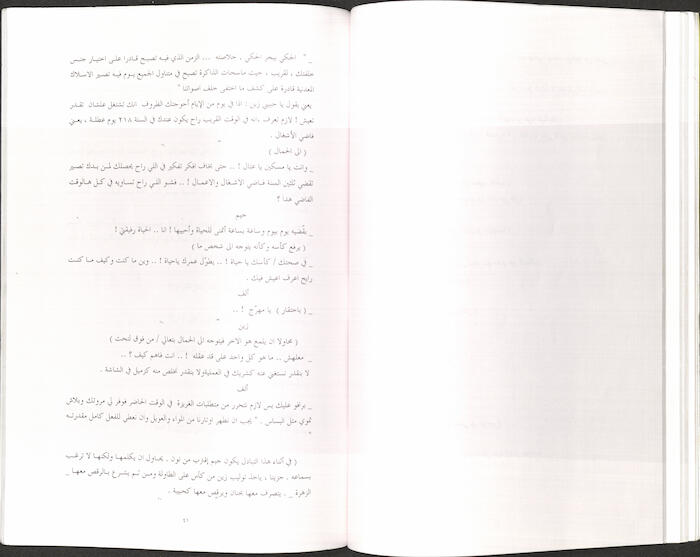 _ " الحكي يبحر الحكي ، خلاصته ... الزمن الذي فيه تصبح قادرا على اختيار جنس
خلفتك ، لقريب ، حيث ماسحات الذاكرة تصبح في متناول الجميع يوم فيه تصير الاسلاك
المعدنية قادرة على كشف ما اختفى خلف اصواتنا "
يعني يقول يا حبيبي زين : اذا في يوم من الايام أحوجتك الظروف انك تشتغل علشان تقدر
تعيش ! لازم تعرف ،انه في الوقت القريب راح يكون عندك في السنة ٢١٨ يوم عطلة ، يعني
فاضي الأشغال .
( الى الحمال )
_ وانت يا مسكين يا عتال ! .. حتى بخاف افكر تفكير في اللي راح يحصلك لمن بدك تصير
تقضي ثلثين السنة فاضي الاشغال والاعمال ! .. فشو اللي راح تساويه في كل هالوقت
الفاضي هدا ؟
جيم
_ بقضيه يوم بيوم وساعة بساعة أغني للحياة وأحييها ! انا .. الحياة رفيقتي !
( يرفع كأسه وكأنه يتوجه الى شخص ما )
_ في صحتك / كأسك يا حياة ! .. يطوّل عمرك ياحياة ! .. وين ما كنت وكيف ما كنت
رايح اعرف اعيش فيك .
ألف
_ ( باحتقار ) يا مهرّج ! ..
زين
( محاولا ان يلمع هو الاخر فيتوجه الى الحمال بتعالي / من فوق لتحت )
_ معلهش .. ما هو كل واحد على قد عقله ! .. انت فاهم كيف ؟ ..
لا بنقدر نستغني عنه كشريك في العملية ولا بنقدر نخلص منه كزميل في الشاشة .
ألف
_ برافو عليك بس لازم نتحرر من متطلبات الغريزة في الوقت الحاضر فوفر لي مروتك وبلاش
تموي مثل البساس . " يجب ان نطهر اوتارنا من المواء والعويل وان نعطي للفعل كامل مقدرته
"
( في أثناء هذا التبادل يكون جيم إقترب من نون . يحاول ان يكلمها ولكنها لا ترغب
بسماعه . حزينا ، ياخذ توليب زين من كأس على الطاولة ومن ثم يشرع بالرقص معها _
الزهرة _ . يتصرف معها بحنان ويرقص معها كحبيبة .
٤١